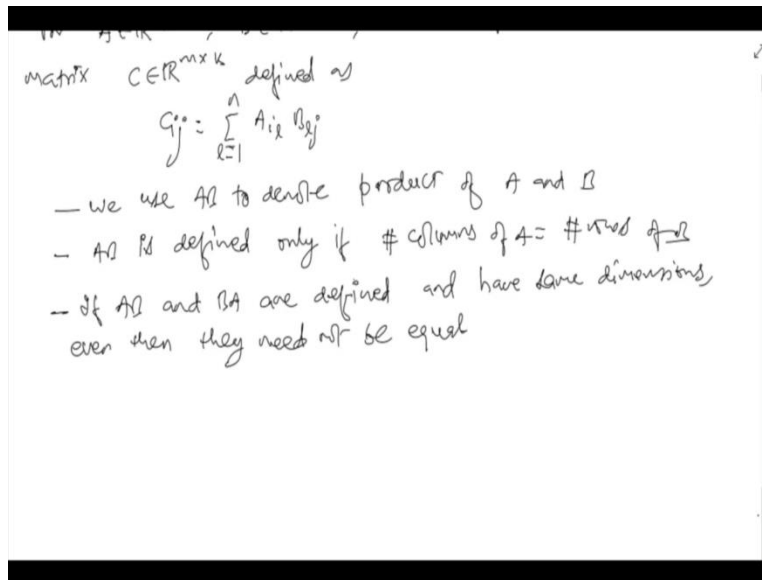 matrix C∈ℝ^{m×k} defined as
C_{ij} = Σ_{l=1}^{n} A_{il} B_{lj}
— we use AB to denote product of A and B
- AB is defined only if # columns of A = # rows of B
- If AB and BA are defined and have same dimensions,
even then they need not be equal